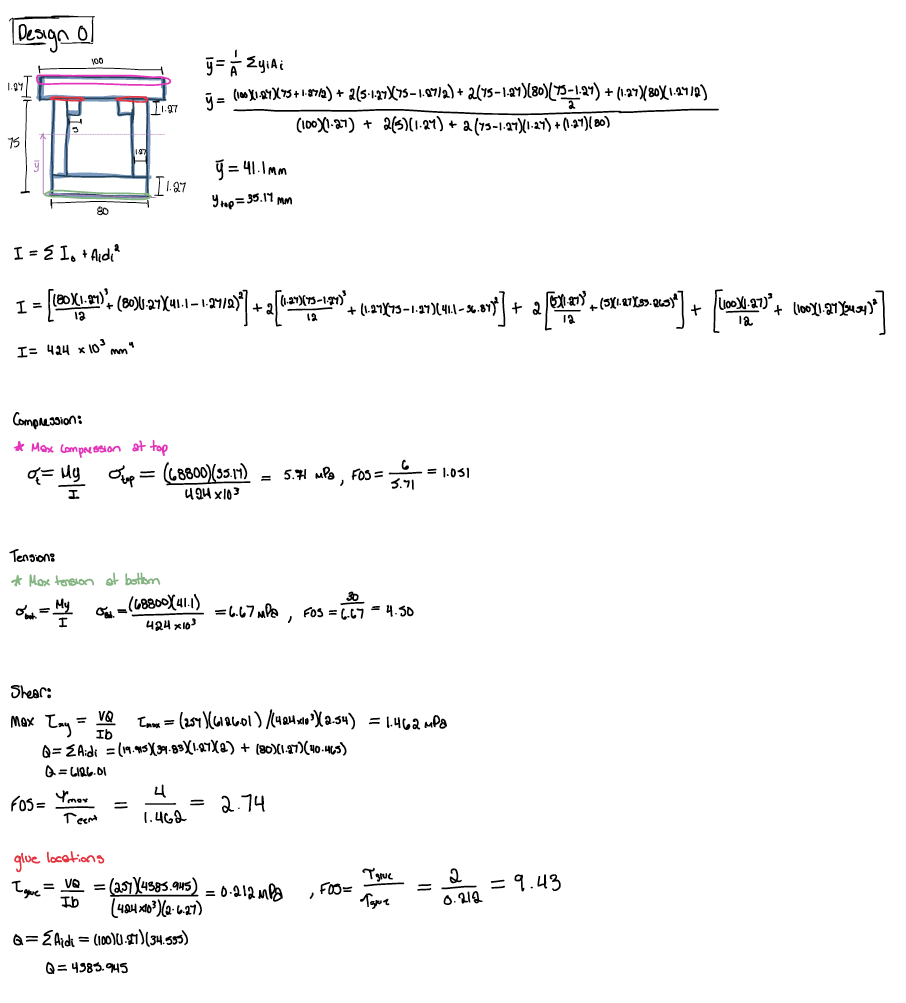 Design 0
100
1.27
1.27
5
75
ȳ
1.27
1.27
80
ȳ = 1/A ΣyᵢAᵢ
ȳ = (100)(1.27)(75+1.27/2) + 2(5·1.27)(75-1.27/2) + 2(75-1.27)(80)(75-1.27/2) + (1.27)(80)(1.27/2)
(100)(1.27) + 2(5)(1.27) + 2(75-1.27)(1.27) + (1.27)(80)
ȳ = 41.1mm
y top = 35.17 mm
I = Σ I₀ + Aᵢdᵢ²
I = [(80)(1.27)³/12 + (80)(1.27)(41.1-1.27/2)²] + 2[(1.27)(75-1.27)³/12 + (1.27)(75-1.27)(41.1-36.87)²] + 2[(5)(1.27)³/12 + (5)(1.27)(33.265)²] + [(100)(1.27)³/12 + (100)(1.27)(34.54)²]
I = 424 ×10³ mm⁴
Compression:
* Max compression at top
σt = My/I σtop = (68800)(35.17)/424×10³ = 5.71 MPa , FOS = 6/5.71 = 1.051
Tension:
* Max tension at bottom
σbot. = My/I σbot. = (68800)(41.1)/424×10³ = 6.67 MPa , FOS = 30/6.67 = 4.50
Shear:
Max τxy = VQ/Ib τmax = (257)(6126.01)/(424×10³)(2.54) = 1.462 MPa
Q = ΣAᵢdᵢ = (19.915)(39.83)(1.27)(2) + (80)(1.27)(40.465)
Q = 6126.01
FOS = τmax/τcent = 4/1.462 = 2.74
glue locations
τglue = VQ/Ib = (257)(4385.945)/(424×10³)(2·6.27) = 0.212 MPa , FOS = τglue/τglue = 2/0.212 = 9.43
Q = ΣAᵢdᵢ = (100)(1.27)(34.535)
Q = 4385.945